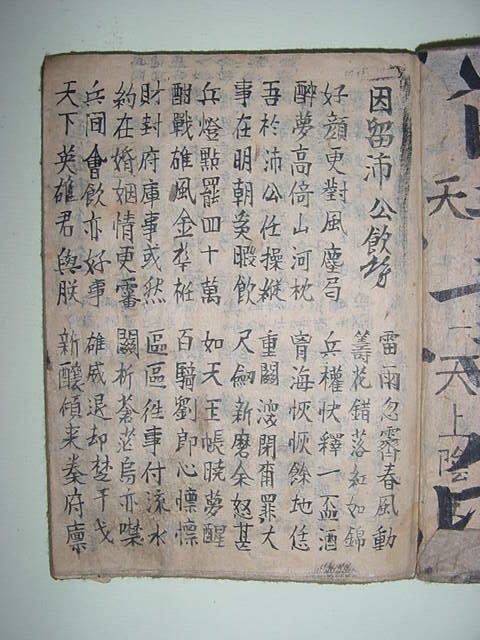 因留沛公飮
雷雨忽霽春風動
籌花錯落紅如錦
好顔更對風塵局 兵權快釋一盃酒
醉夢高倚山河枕 曾海恢恢餘地恁
吾於沛公任操縱 重關閉罪大
事在明朝奚暇飮 尺劒新磨余怒甚
兵燈點罷四十萬 如天玉帳曉夢醒
酣戰雄風金 百騎劉郎心懍懍
財封府庫事或然 區區徃事付流水
約在婚姻情更審 關柝蒼茫烏亦噤
兵间會飮亦好事 雄威退却楚干戈
天下英雄君與朕 新釀傾来秦府廩
天一天上陰